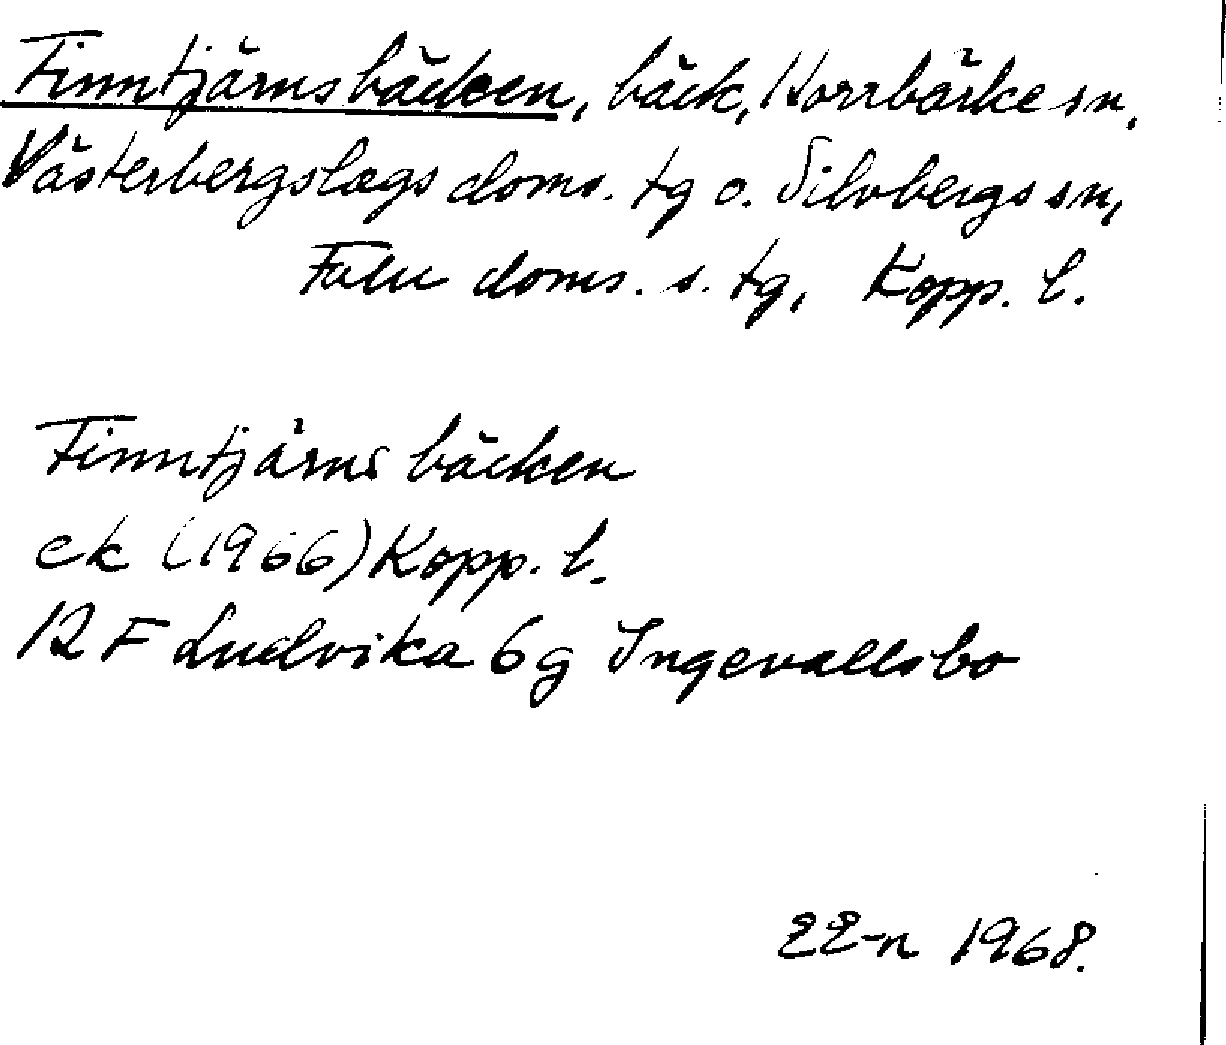 Finntjärnsbäcken, bäck, Norrbärke sn,
Västerbergslags doms. tg o. Silvbergs sn,
Falu doms. s. tg, Kopp. l.
Finntjärnsbäcken
ek (1966) Kopp. l.
12 F Ludvika 6g Ingevallsbo
EE-n 1968.